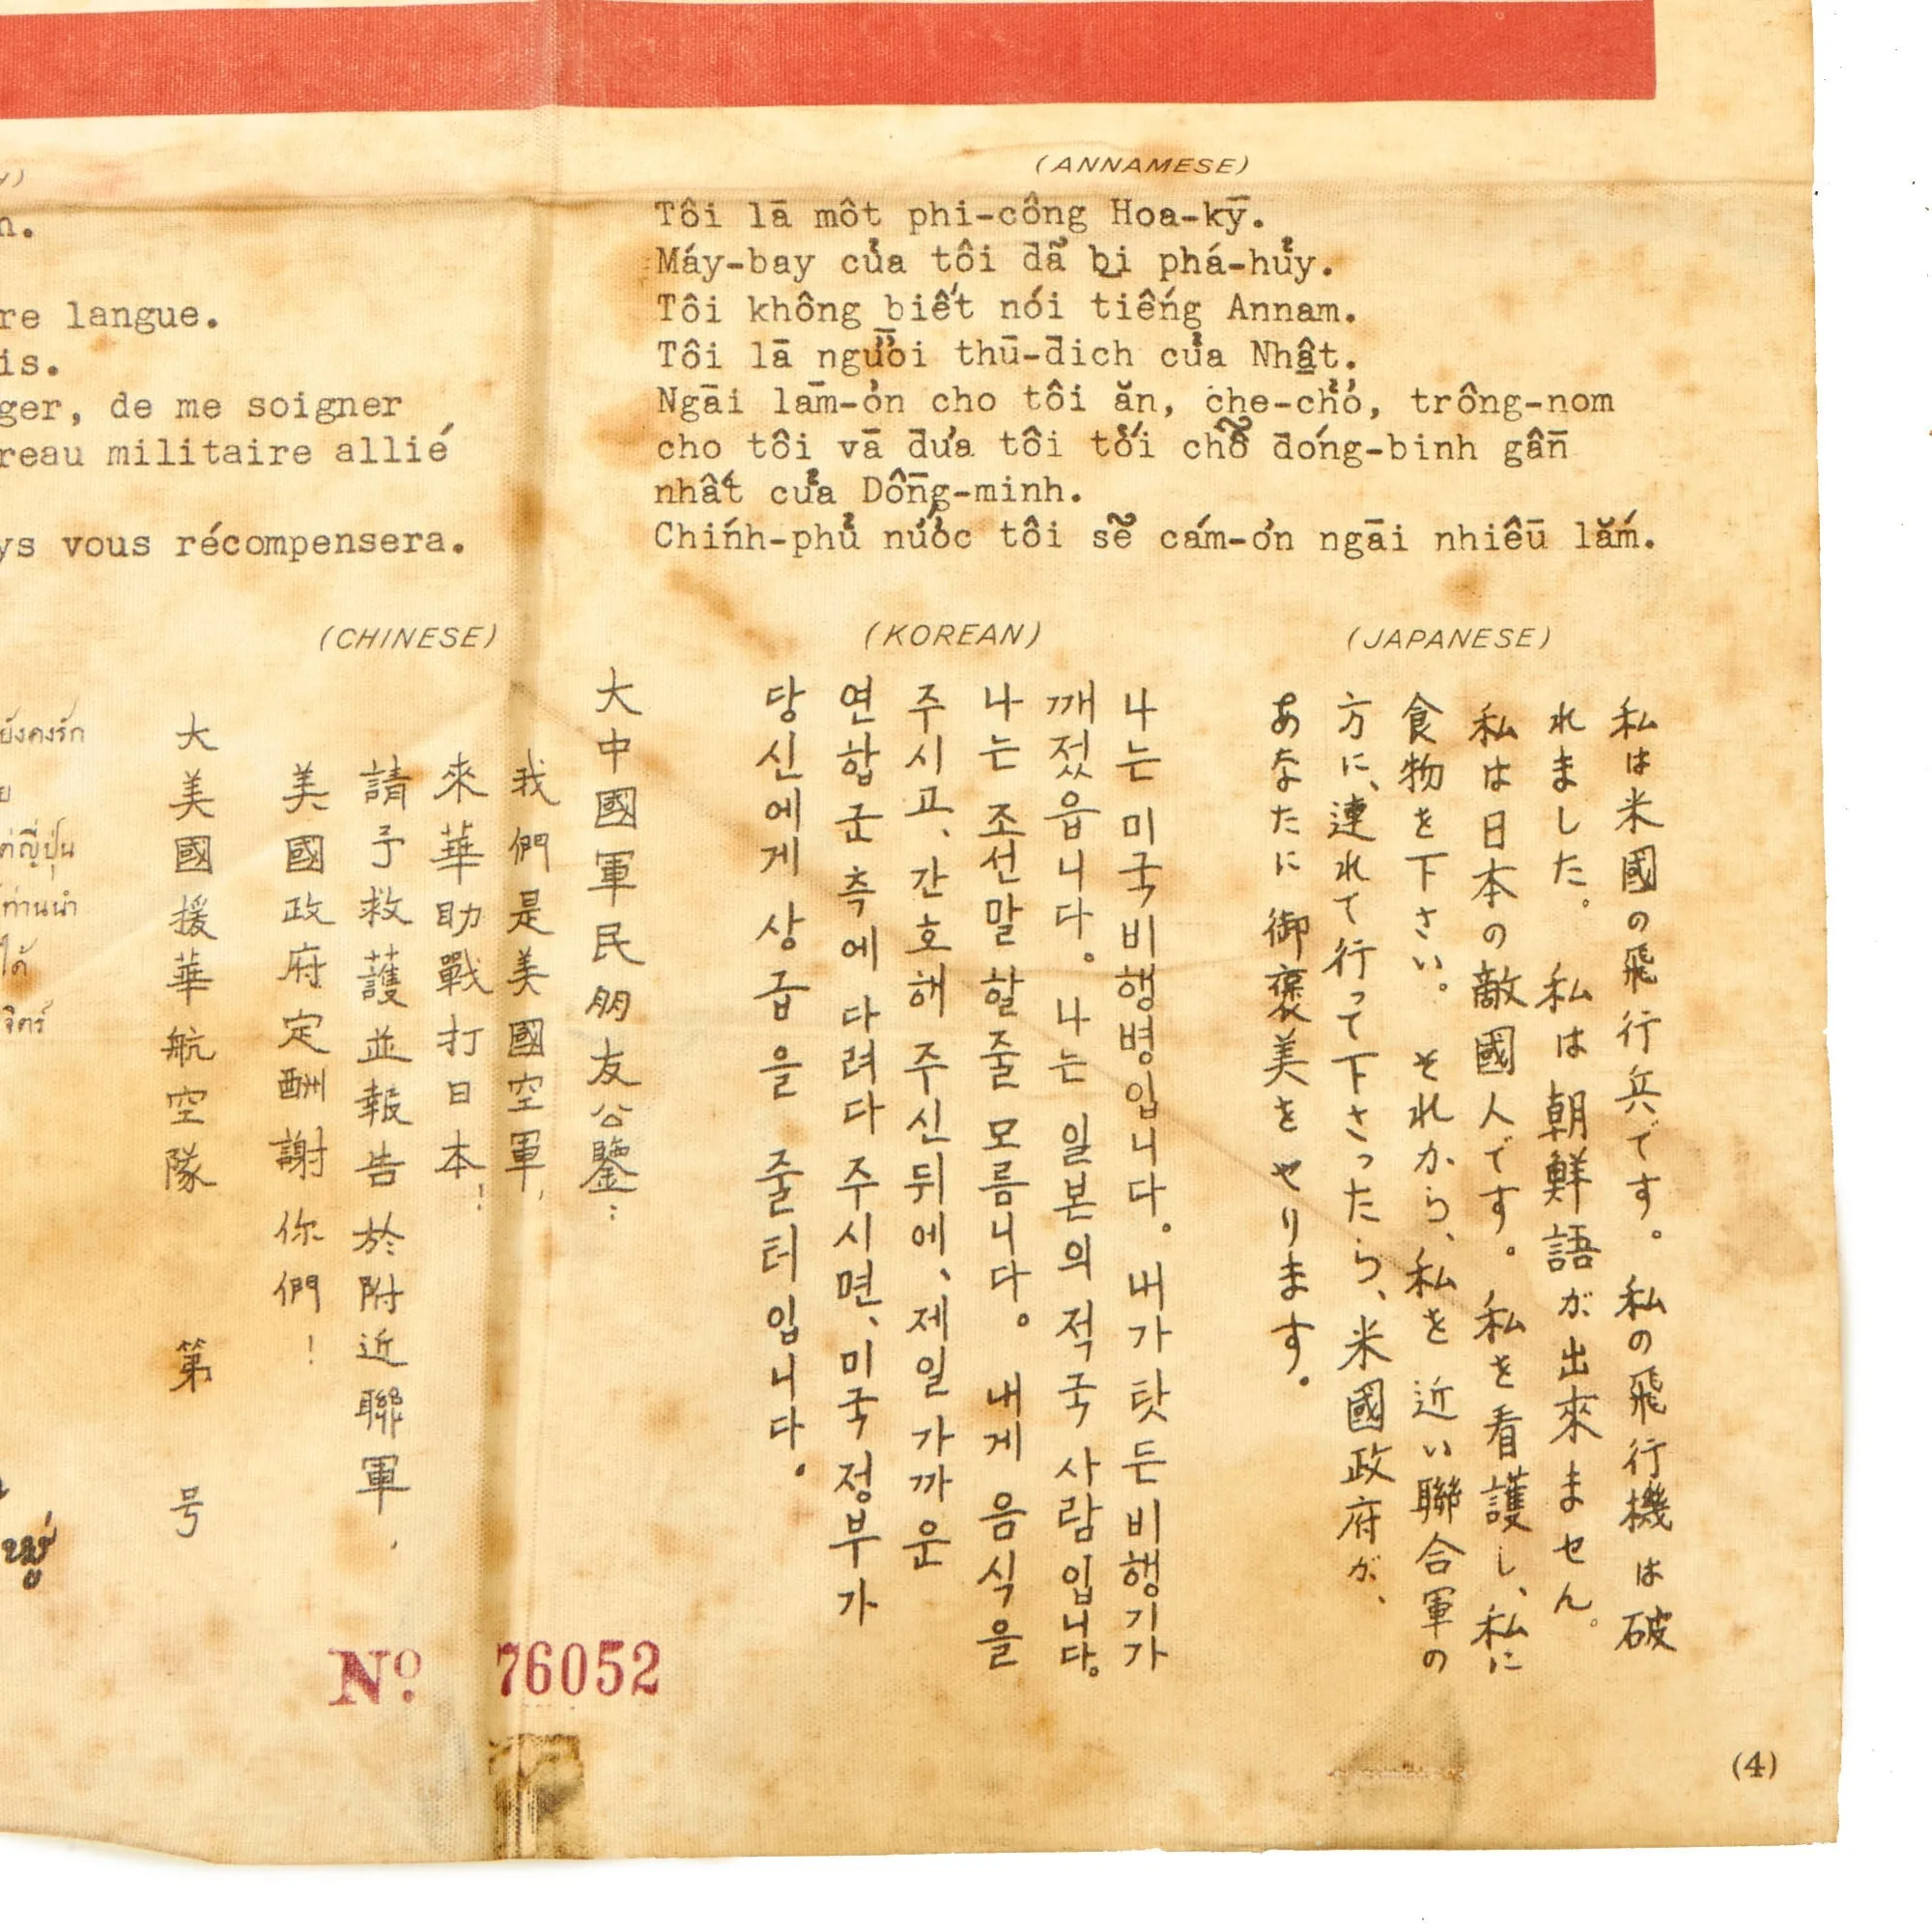 (ANNAMESE)
Tôi lā môt phi-công Hoa-kȳ.
Máy-bay của tôi đã bị phá-hủy.
Tôi không biết nói tiếng Annam.
Tôi lā người thū-đich của Nhật.
Ngāi lām-ơn cho tôi ăn, che-chở, trông-nom
cho tôi vā đưa tôi tới chỗ đóng-binh gần
nhất của Dồng-minh.
Chính-phủ nước tôi sẽ cám-ơn ngāi nhiều lắm.
n.
re langue.
is.
ger, de me soigner
reau militaire allié
ys vous récompensera.
(CHINESE)
大中國軍民朋友公鑒:
我們是美國空軍,
來華助戰打日本!
請予救護並報告於附近聯軍,
美國政府定酬謝你們!
大美國援華航空隊 第 号
(KOREAN)
나는 미국 비행병입니다。 내가 탓든 비행기가
깨졌읍니다。 나는 일본의 적국 사람입니다。
나는 조선말 할줄 모름니다。 내게 음식을
주시고、간호해 주신뒤에、제일 가까운
연합군 측에 다려다 주시면、미국정부가
당신에게 상급을 줄터입니다.
(JAPANESE)
私は米國の飛行兵です。私の飛行機は破
れました。 私は朝鮮語が出來ません。
私は日本の敵國人です。私を看護し、私に
食物を下さい。 それから、私を近い聯合軍の
方に、連れて行って下さったら、米國政府が、
あなたに御褒美をやります.
ยังคงรัก
ต่ญี่ปุ่น
ท่านนำ
ได้
จิตร์
Nº 76052
(4)